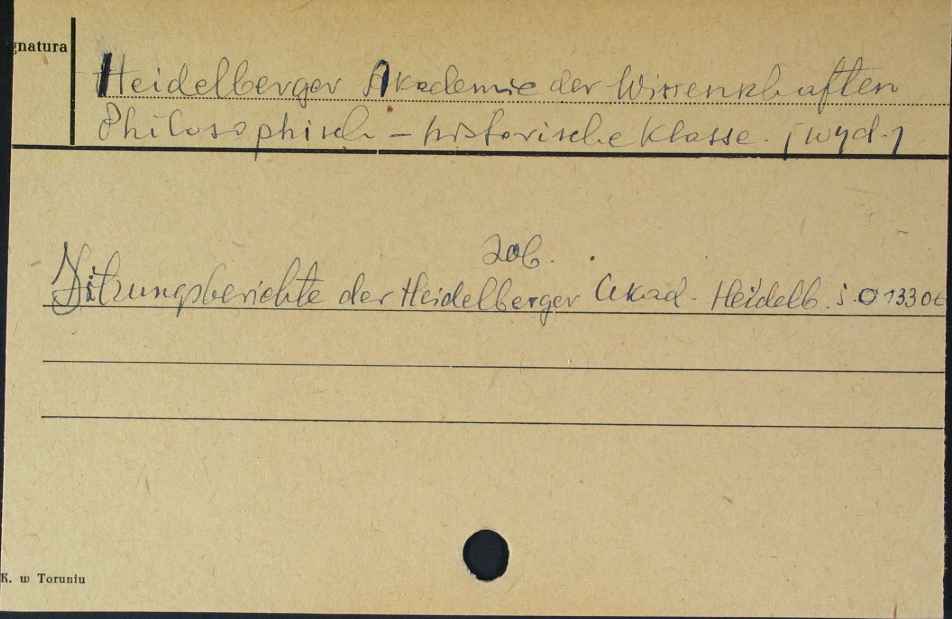 gnatura
Heidelberger Akademie der Wissenschaften
Philosophisch-historische Klasse. [wyd.]
zob.
Sitzungsberichte der Heidelberger Akad. Heidelb. S. 01330
K. w Toruniu